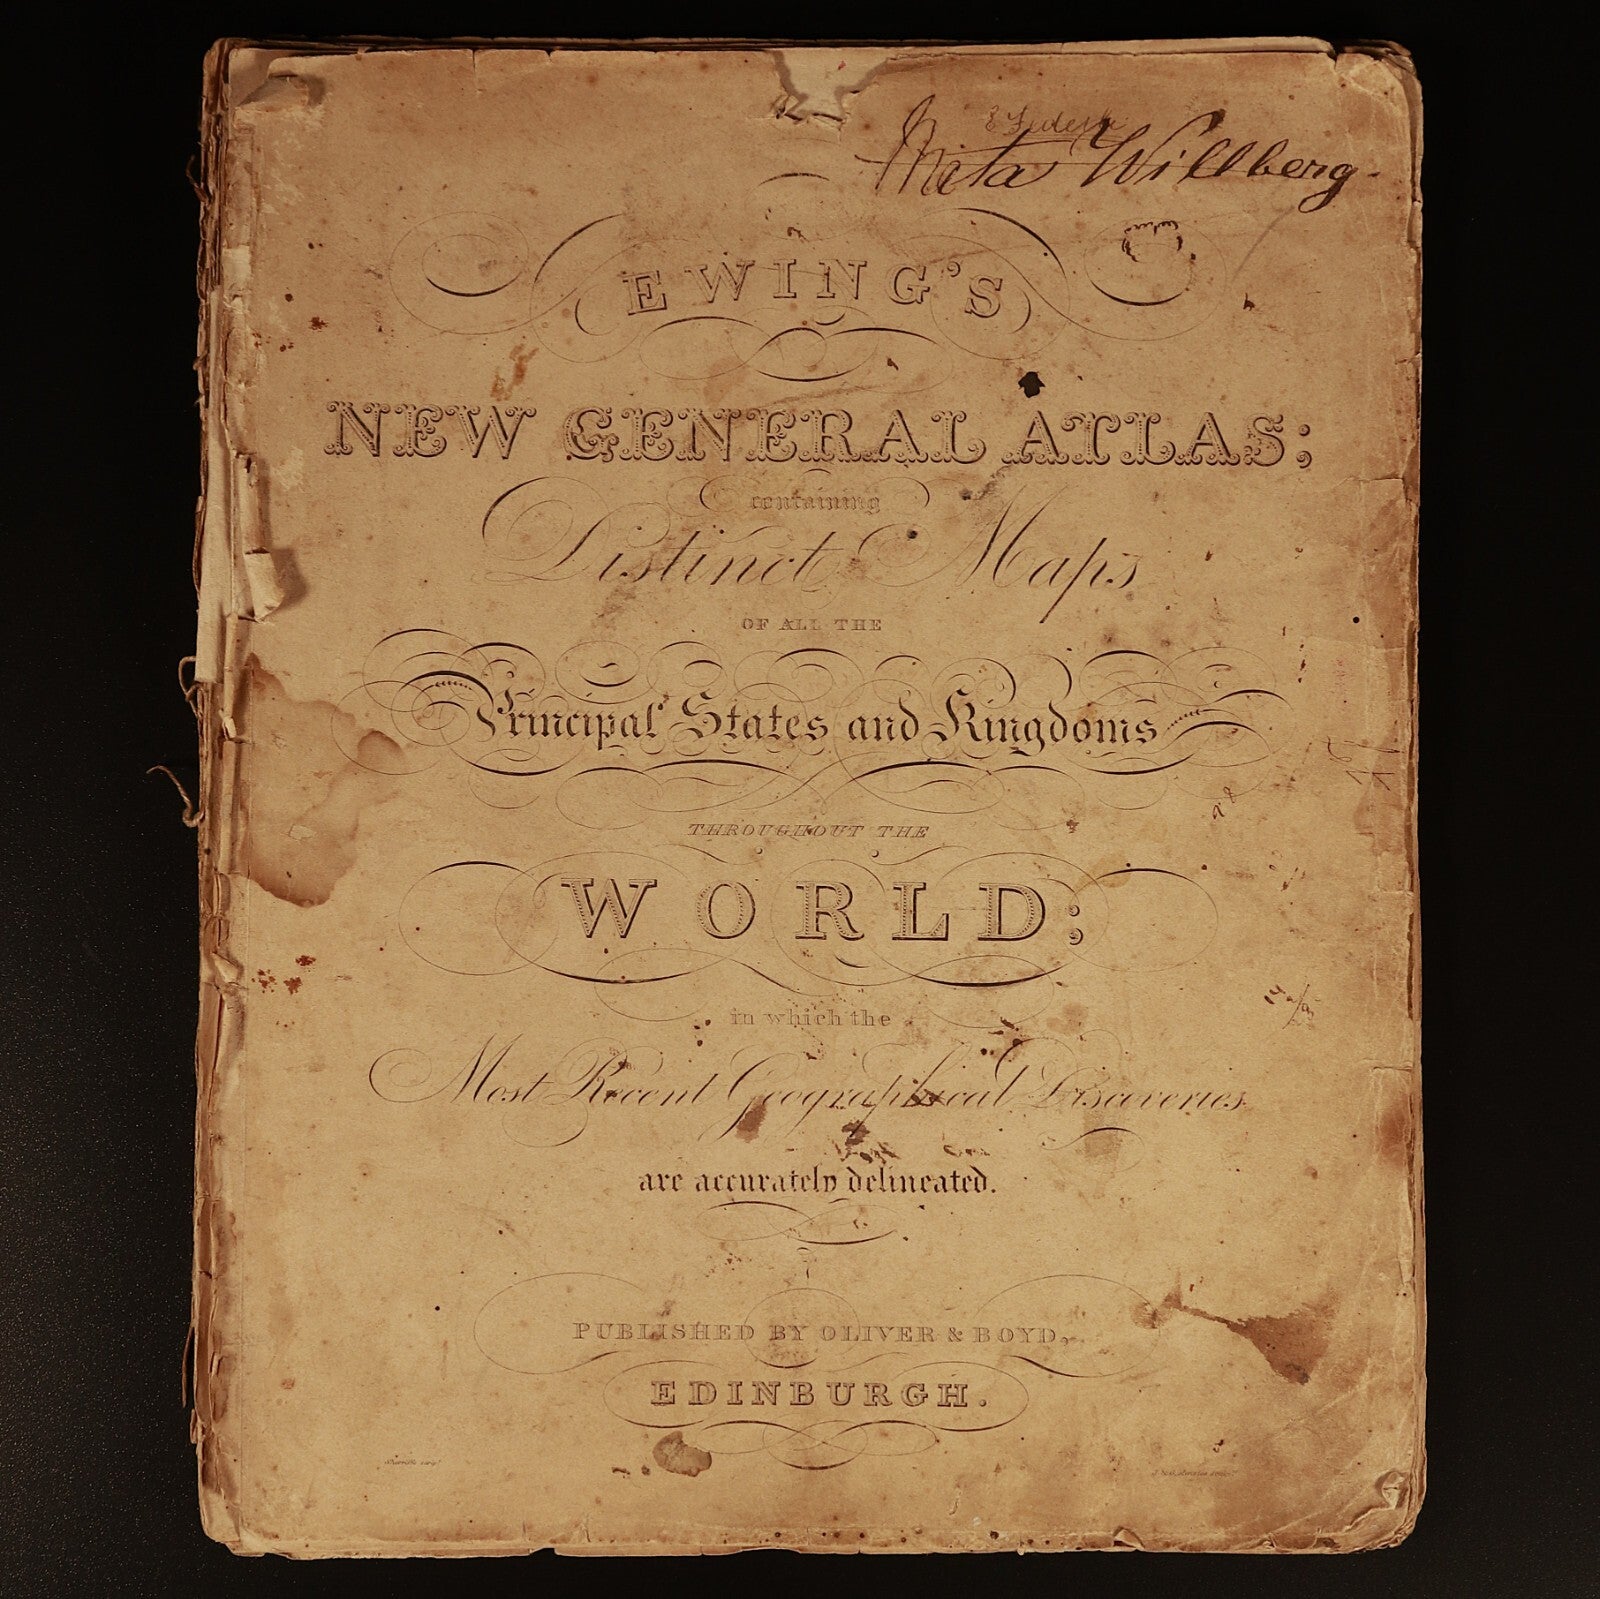 Meta Willberg.
EWING'S
NEW GENERAL ATLAS;
containing
Distinct Maps
OF ALL THE
Principal States and Kingdoms
THROUGHOUT THE
WORLD;
in which the
Most Recent Geographical Discoveries
are accurately delineated.
PUBLISHED BY OLIVER & BOYD,
EDINBURGH.